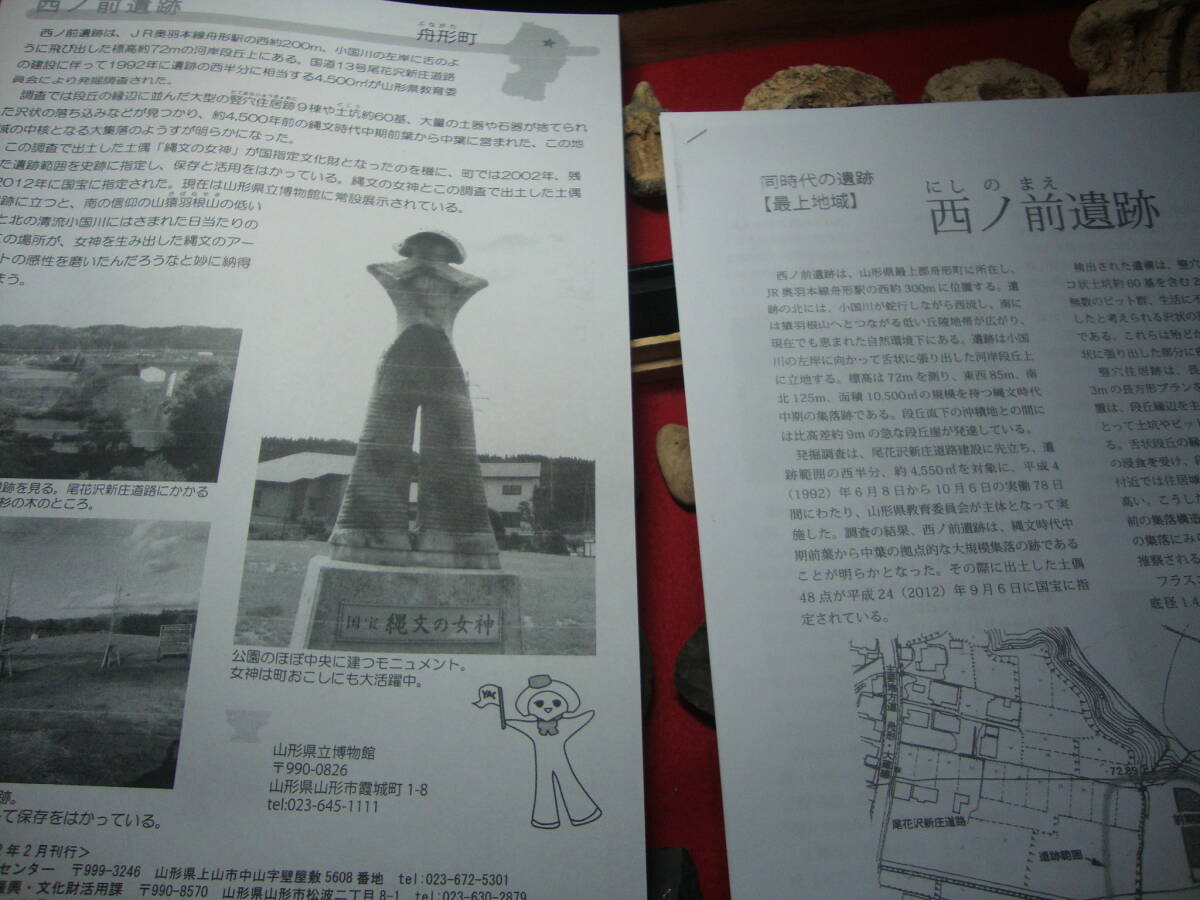 西ノ前遺跡
ふながた
舟形町
西ノ前遺跡は、JR奥羽本線舟形駅の西約200m、小国川の左岸に舌のよ
うに飛び出した標高約72mの河岸段丘上にある。国道13号尾花沢新庄道路
の建設に伴って1992年に遺跡の西半分に相当する4,500㎡が山形県教育委
員会により発掘調査された。
調査では段丘の縁辺に並んだ大型の竪穴住居跡9棟や土坑約60基、大量の土器や石器が捨てられ
た沢状の落ち込みなどが見つかり、約4,500年前の縄文時代中期前葉から中葉に営まれた、この地
域の中核となる大集落のようすが明らかになった。
この調査で出土した土偶「縄文の女神」が国指定文化財となったのを機に、町では2002年、残
た遺跡範囲を史跡に指定し、保存と活用をはかっている。縄文の女神とこの調査で出土した土偶
2012年に国宝に指定された。現在は山形県立博物館に常設展示されている。
跡に立つと、南の信仰の山猿羽根山の低い
と北の清流小国川にはさまれた日当たりの
の場所が、女神を生み出した縄文のアー
トの感性を磨いたんだろうなと妙に納得
まう。
跡を見る。尾花沢新庄道路にかかる
杉の木のところ。
国宝 縄文の女神
公園のほぼ中央に建つモニュメント。
女神は町おこしにも大活躍中。
山形県立博物館
〒990-0826
山形県山形市霞城町1-8
tel:023-645-1111
跡。
て保存をはかっている。
2年2月刊行>
センター 〒999-3246 山形県上山市中山字壁屋敷5608番地 tel:023-672-5301
興・文化財活用課 〒990-8570 山形県山形市松波二丁目8-1 tel:023-630-2879
同時代の遺跡
【最上地域】
にしのまえ
西ノ前遺跡
西ノ前遺跡は、山形県最上郡舟形町に所在し、
JR奥羽本線舟形駅の西約300mに位置する。遺
跡の北には、小国川が蛇行しながら西流し、南に
は猿羽根山へとつながる低い丘陵地帯が広がり、
現在でも恵まれた自然環境下にある。遺跡は小国
川の左岸に向かって舌状に張り出した河岸段丘上
に立地する。標高は72mを測り、東西85m、南
北125m、面積10.500㎡の規模を持つ縄文時代
中期の集落跡である。段丘直下の沖積地との間に
は比高差約9mの急な段丘崖が発達している。
発掘調査は、尾花沢新庄道路建設に先立ち、遺
跡範囲の西半分、約4,550㎡を対象に、平成4
(1992)年6月8日から10月6日の実働78日
間にわたり、山形県教育委員会が主体となって実
施した。調査の結果、西ノ前遺跡は、縄文時代中
期前葉から中葉の拠点的な大規模集落の跡である
ことが明らかとなった。その際に出土した土偶
48点が平成24(2012)年9月6日に国宝に指
定されている。
検出された遺構は、竪穴
コ状土坑約60基を含む2
無数のピット群、生活に
したと考えられる沢状の
である。これらは殆ど
状に張り出した部分に
竪穴住居跡は、長
3mの長方形プラン
置は、段丘縁辺を主
とって土坑やピッ
る。舌状段丘の縁
の浸食を受け、
付近では住居
高い。こうし
前の集落構造
の集落にみ
推察される
フラス
底径1.4
72.89
尾花沢新庄道路
遺跡範囲